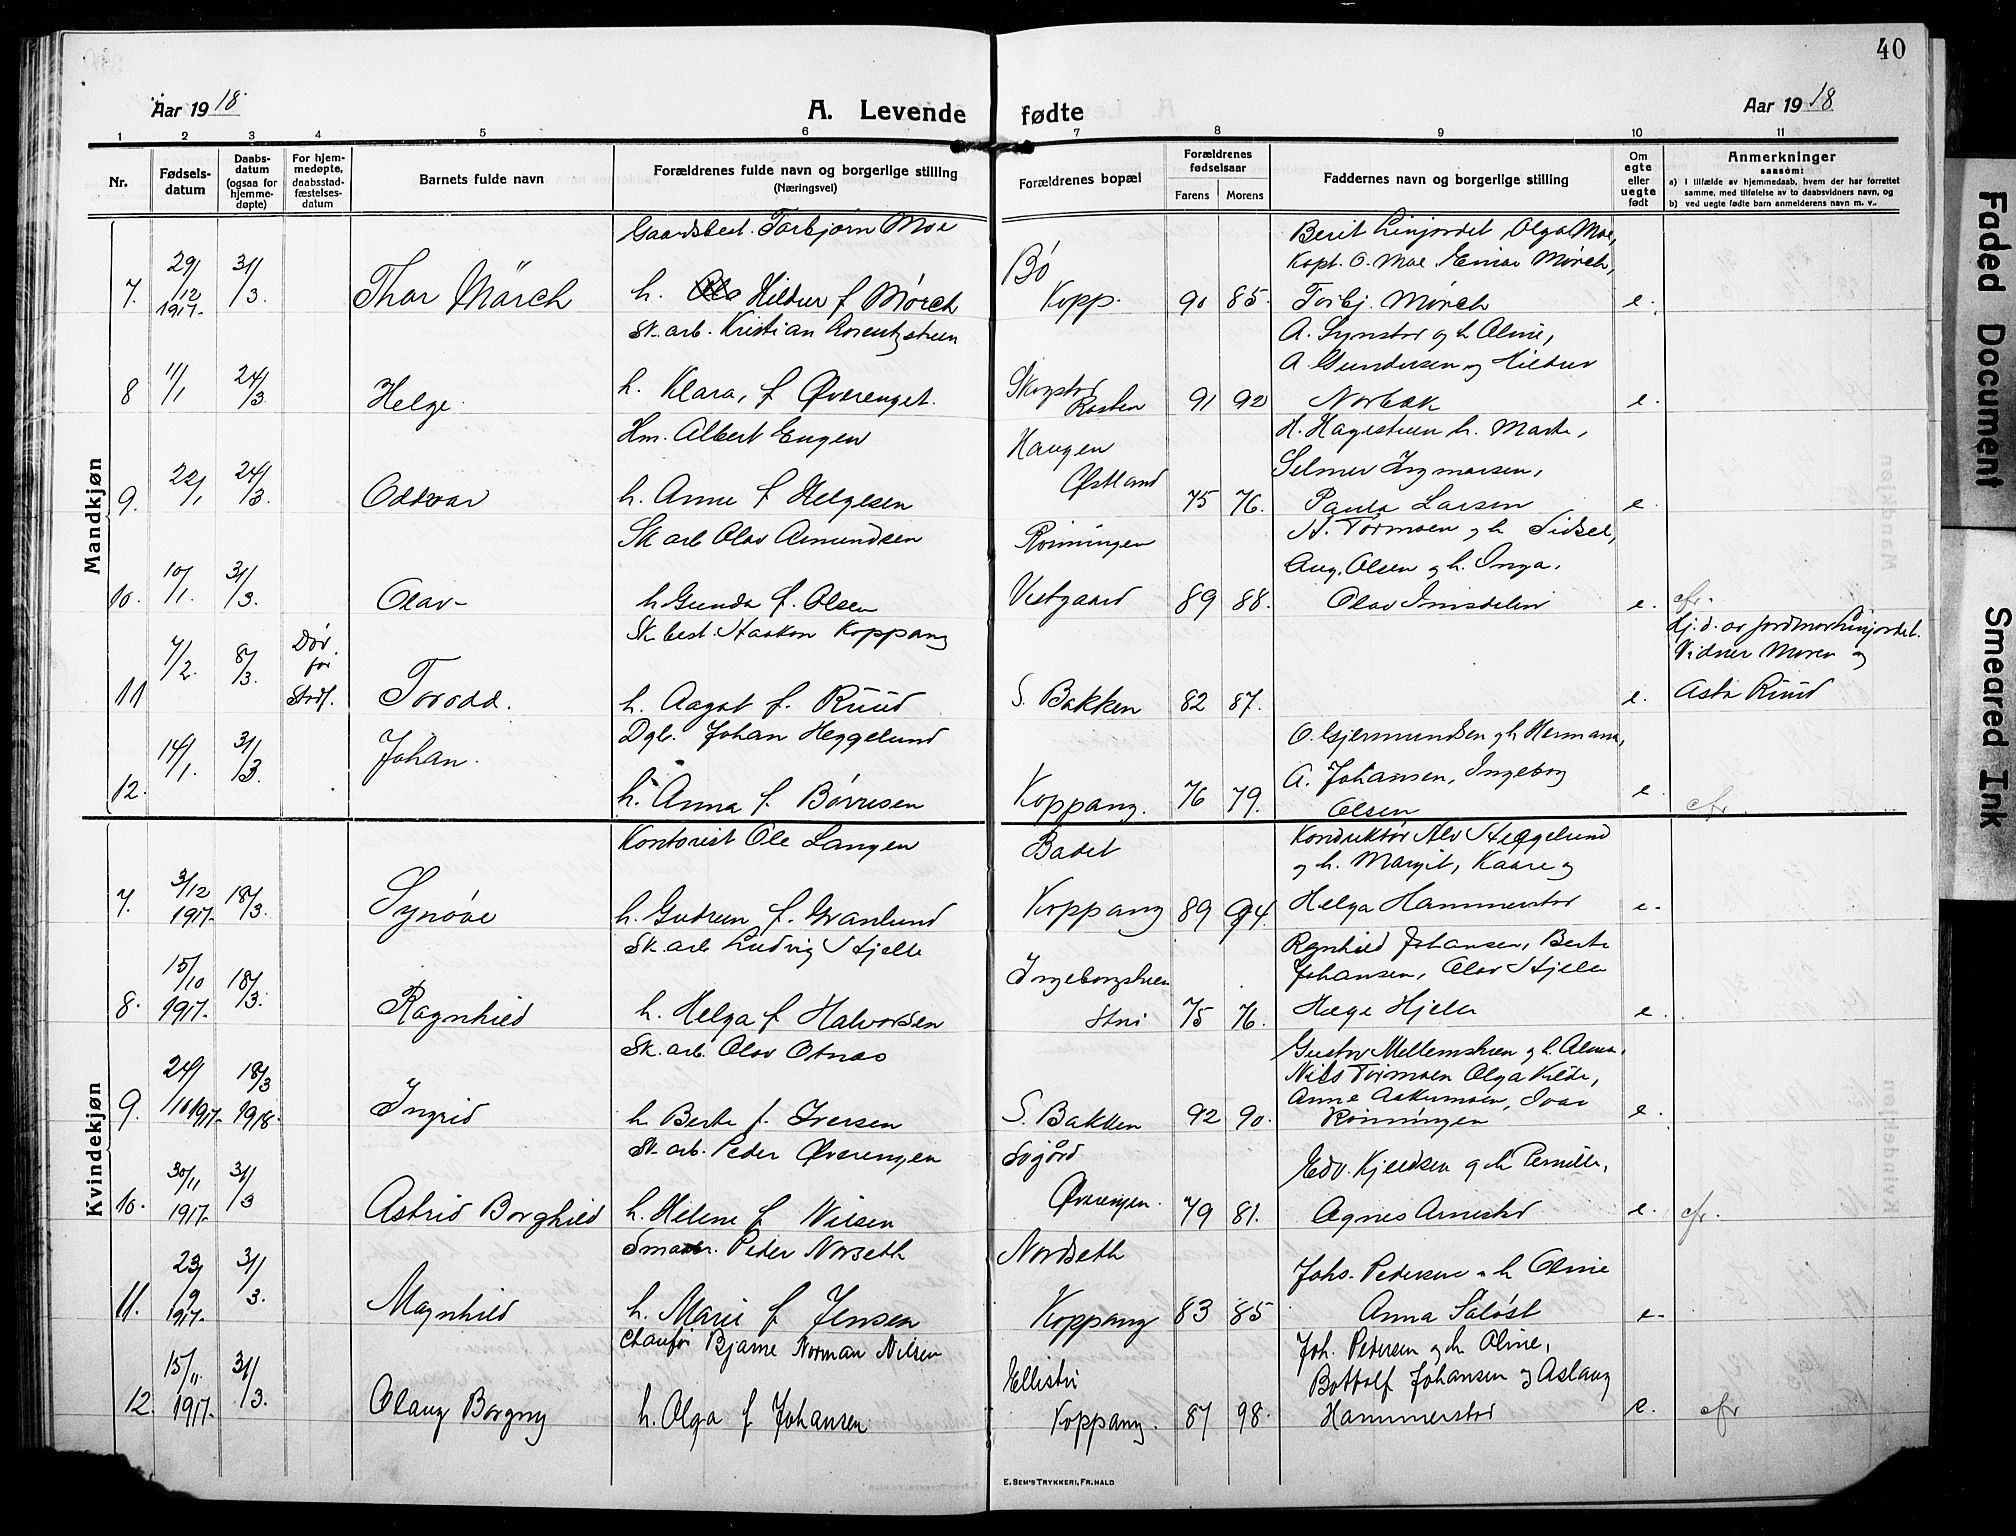 40
Aar 1918.
A. Levende fødte
Aar 1918
1 2 3 4 5 6 7 8 9 10 11
Nr.
Fødsels-
datum
Daabs-
datum
(ogsaa for
hjemme-
døpte)
For hjem-
medøpte,
daabsstad-
fæstelses-
datum
Barnets fulde navn
Forældrenes fulde navn og borgerlige stilling
(Næringsvei)
Forældrenes bopæl
Forældrenes
fødselsaar
Farens Morens
Faddernes navn og borgerlige stilling
Om
egte
eller
uegte
født
Anmerkninger
saasom:
a) I tilfælde av hjemmedaab, hvem der har forrettet
samme, med tilføielse av to daabsvidners navn, og
b) ved uegte fødte barn anmelderens navn m. v.
Mandkjøn
Gaardsbest. Torbjørn Moe
7. 29/12 1917- 31/3 Thor Mörch h. Hildur f Mørch
Bö
Kopp. 90 85.
Berit Linjordet, Olga Moe,
Kapt. O. Moe. Einar Mørch,
Torbj. Mørch e.
Sk. arb. Kristian
8 11/1 24/3. Helge. h. Klara, f Øverenget.
Skogstad
91 92
A. Synstør og h. Oline,
A. Gundersen og Hildur
Norbæk e.
Hm. Albert Engen
9. 22/1 24/3. Oddvar h. Anne f Helgesen
Haugen
Østland
75 76.
H. Hagestuen h. Marte,
Selmer Ingmarsen,
Paula Larsen e.
Sk arb Olav Amundsen
10. 10/1. 31/3. Olav- h Gunda f. Olsen
Rönningen
Vestgaard 89 88.
A. Tormoen og h Sidsel,
Aug. Olsen og h. Inga.
Olav Imsdalen e. cfr.
Sk. best. Haakon Koppang
11 7/2. 8/3. Död før Stadf. Torodd. h. Aagot f. Ruud
S. Bakken 82 87. e.
Hj. d. av jordmor Linjordet.
Vidner Moren og
Asta Ruud
Dgl. Johan Heggelund
12. 14/1. 31/3. Johan. h. Anna f. Børresen
Koppang. 76 79.
O. Gjermundsen og h Hermana,
A. Johansen, Ingeborg
Olsen e. cfr.
Kvindekjøn
Kontorist Ole Langen
7. 3/12 1917- 18/3. Synøve h. Gudrun f. Granlund
Badet
Koppang 89 94.
Konduktör Alv Heggelund
og h. Margit, Kaare og
Helga Hammerstad e-
Sk. arb Ludvig Hjelle
8. 15/10 1917- 18/3. Ragnhild h. Helga f Halvorsen
Ingeborgstuen
Strø 75 76.
Ragnhild Johansen, Berte
Johansen, Olav Hjelle
Hege Hjelle e.
Sk. arb. Olav Otnæs
9. 24/10 1917- 18/3 1918. Ingrid h Berte f. Iversen
S. Bakken 92 90.
Gustav Mellemstuen og h. Alma,
Nils Tormoen Olga Kilde,
Anne Aakermoen, Ivar
Rönningen e.
Sk. arb. Peder Øverengen
10. 30/11 1917- 31/3 Astrid Borghild h. Helene f Nilsen
Øverengen. 79 81.
Edv. Kjeldsen og h Pernille,
Agnes Arnestad e. cfr.
Peder Norseth
11. 23/9 1917- 31/3. Magnhild h. Marie f Jensen
Nordseth
Koppang 83 85
Johs. Pedersen og h Oline
Anna Saløst e-
Chauför Bjarne Norman Nilsen
12. 15/11 1917- 31/3. Olaug Borgny h. Olga f Johansen
Koppang. 87 98.
Joh. Pedersen og h Oline,
Bottolf Johansen og Aslaug
Hammerstad e. cfr
E. SEM'S TRYKKERI, FR.HALD
Faded Document
Smeared Ink